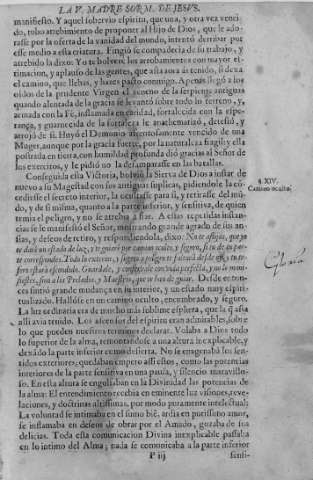 LA V. MADRE SOR M. DE JESVS.
manifiesto. Y aquel sobervio espiritu, que una, y otra vez venci-
do, tubo atrebimiento de proponer al Hijo de Dios, que le ado-
rasse por la oferta de la vanidad del mundo, intentó derribar por
esse medio a esta criatura. Fingió se compadecia de su trabajo, y
atrebido la dixo: Yo te bolveré los arrobamientos con mayor es-
timacion, y aplauso de las gentes, que asta aora as tenido, si dexas
el camino, que llebas, y hazes pacto conmigo. Apenas llegó a los
oidos de la prudente Virgen el veneno de la serpiente antigua
quando alentada de la gracia se levantó sobre todo lo terreno, y,
armada con la Fé, inflamada en caridad, fortalecida con la espe-
rança, y guarnecida de la fortaleza le anathematizó, detestó, y
arrojó de si. Huyó el Demonio afrentosamente vencido de una
Muger, aunque por la gracia fuerte, por la naturaleza fragil; y esta
postrada en tierra, con humildad profunda dió gracias al Señor de
los exercitos, y le pidió no la desamparasse en las batallas.
Conseguida esta Victoria, bolvió la Sierva de Dios a instar de
nuevo a su Magestad con sus antiguas suplicas, pidiendole la co-
cediesse el secreto interior, la ocultasse para si, y retirasse del mú-
do, y de si misma, quanto a la parte inferior, y sensitiva, de quien
temia el peligro, y no se atrebia a fiar. A estas repetidas instan-
cias se le manifestó el Señor, mostrando grande agrado de sus an-
sias, y deseos de retiro, y respondiendola, dixo: No te aflijas, que yo
te daré un estado de luz; y te guiaré por camino oculto, y seguro, si tu de tu par-
te correspondes. Todo lo exterior, y
seguro
Guardale,
§. XIV.
Camino oculto.
Gloria
fiestes, sino a los Prelados, y Maestros, que te han de guiar. Desde enton-
ces sintió grande mudança en su interior, y un estado muy espiri-
tualizado. Hallóse en un camino oculto, encumbrado, y seguro.
La luz ordinaria era de mucho mas sublime esphera, que la q̃ asta
alli avia tenido. Los ascensos del espiritu eran admirables, sobre
lo que pueden nuestros terminos declarar. Volaba a Dios todo
lo superior de la alma, remontandose a una altura inexplicable, y
dexádo la parte inferior como desierta. No se enagenabā los sen-
tidos exteriores; quedaban empero assi estos, como las potencias
interiores de la parte sensitiva en una pausa, y silencio maravillo-
so. En esta altura se engolfaban en la Divinidad las potencias de
la alma: El entendimiento recebia en eminente luz visiones, reve-
laciones, y doctrinas altissimas, por modo puramente intelectual:
La voluntad se intimaba en el sumo bié, ardia en purissimo amor,
se inflamaba en deseos de obrar por el Amado, gozaba de sus
delicias. Toda esta comunicacion Divina inexplicable passaba
en lo intimo del Alma; nada se comunicaba a la parte inferior
P iij
sensi-